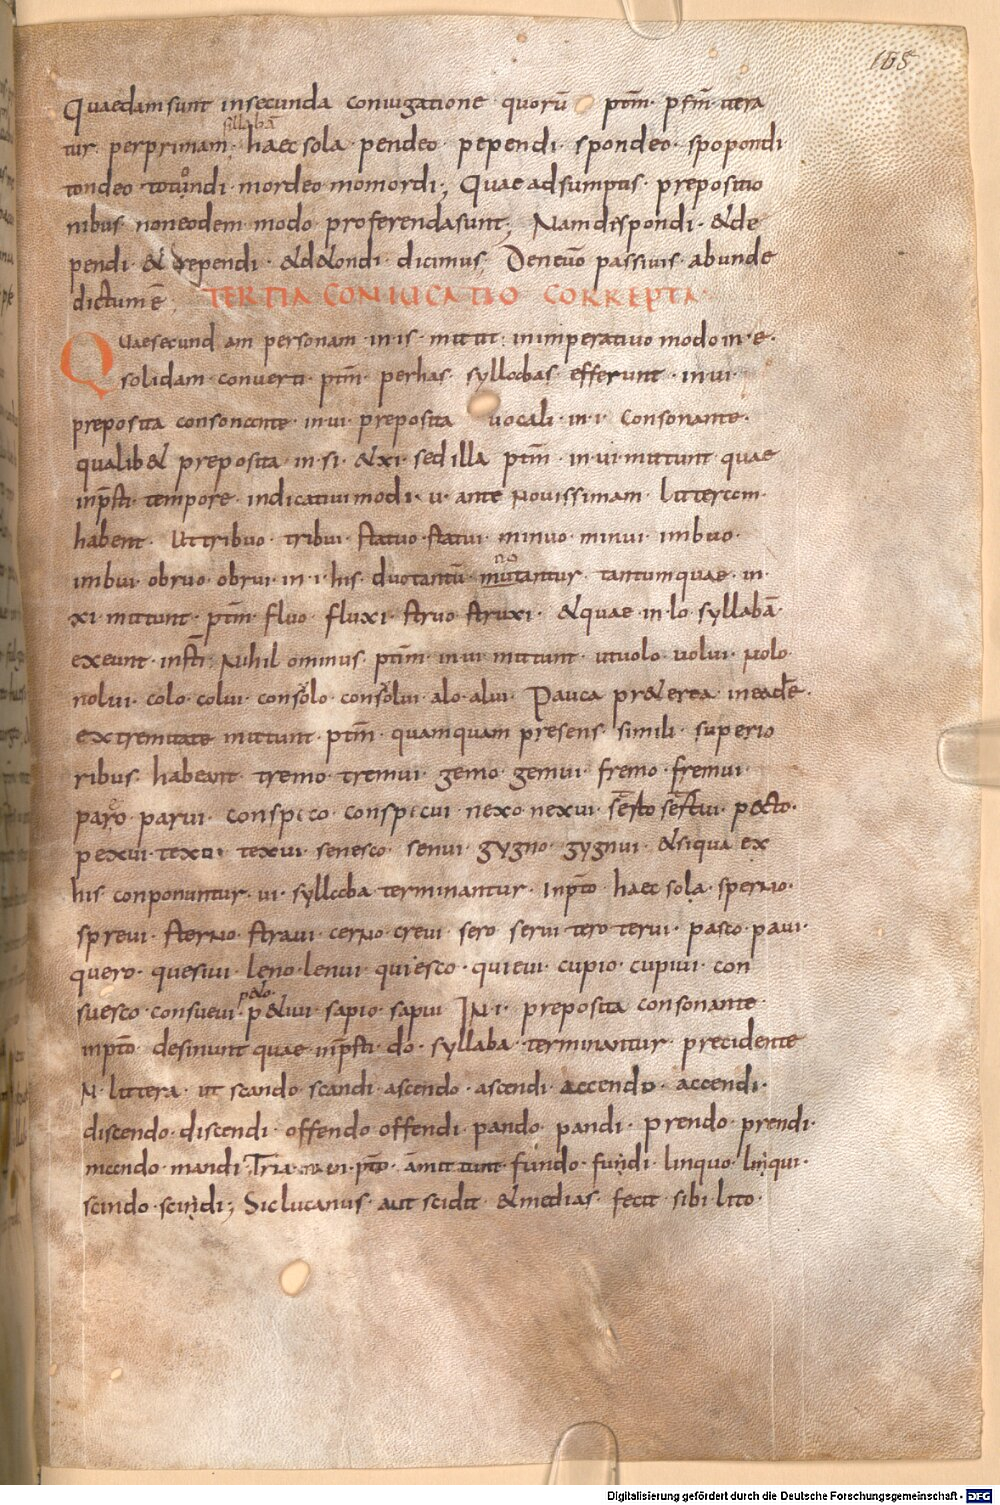 165
Quaedam sunt in secunda coniugatione quorū ptm̄ · pfm̄ · itera
sillabā
tur · per primam · haec sola · pendeo · pependi · spondeo · spopondi
tondeo · totondi · mordeo momordi; Quae adsumptis · prepositio
nibus non eodem modo proferenda sunt; Nam dispondi · & de
pendi · & rependi · & d&ondi dicimus; De neutro passivis abunde
dictum ē; TERTIA CONIUGATIO CORREPTA·
Quae secundam personam · in · is · mittit · in imperativo modo in · e ·
solidam converti · ptm̄ · per has · syllabas efferunt · in ui ·
preposita consonante · in ui · preposita vocali · in · i · consonante ·
qualib& preposita · in · si · & xi · sed illa ptm̄ · in · ui · mittunt quae
in p̄sti tempore · indicativi modi · u · ante novissimam litteram ·
habent · Ut tribuo · tribui · statuo · statui · minuo · minui · imbuo ·
no
imbui · obruo · obrui · in · i · his duo tantū mutantur · tantum quae · in ·
xi · mittunt · ptm̄ · fluo · fluxi · struo struxi · & quae in · lo syllabā
exeunt · insti; Nihil ominus ptm̄ · in ui mittunt · ut volo · volui · nolo ·
nolui · colo · colui · consolo · consolui · alo · alui · Pauca pr&erea · in eadē ·
extremitate mittunt · ptm̄ · quamquam presens · simili · superio
ribus · habeant · tremo · tremui · gemo · gemui · fremo · fremui ·
paro · parui · conspico · conspicui · nexo · nexui · sesto sestui · p&to ·
pexui · texo · texui · senesco · senui · gygno · gygnui · & siqua ex
his conponuntur · ui · syllaba terminantur · In p̄to haec sola · sperno ·
sprevi · sterno stravi · cerno · crevi · sero servi · tero tervi · pasco · pavi ·
quero · quesivi · leno · lenui · quiesco · quievi · cupio · cupivi · con
peto ·
suesco · consuevi · p&ivi · sapio · sapui · IN · i · preposita consonante ·
in p̄to desinunt quae in p̄sti · do · syllaba terminantur · precidente
N · littera · ut scando · scandi · ascendo · ascendi · accendo · accendi ·
discendo · discendi · offendo offendi · pando · pandi · prendo · prendi ·
mando · mandi · Tria · in p̄to · amittunt · fundo · fundi · linquo · linqui ·
scindo · scindi; Sic lucanus aut scidit · & medias · fecit sibi lito ·
Digitalisierung gefördert durch die Deutsche Forschungsgemeinschaft - DFG